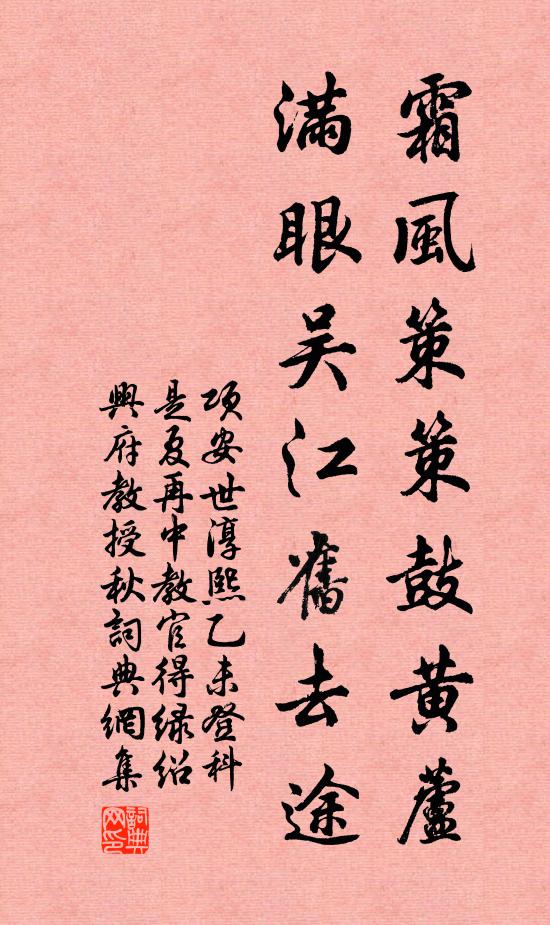 霜風策策鼓黄蘆
滿眼吴江舊去途
項安世淳熙乙未登科
是夏再中教官得绿绍
興府教授秋詞典網集
詞典網印